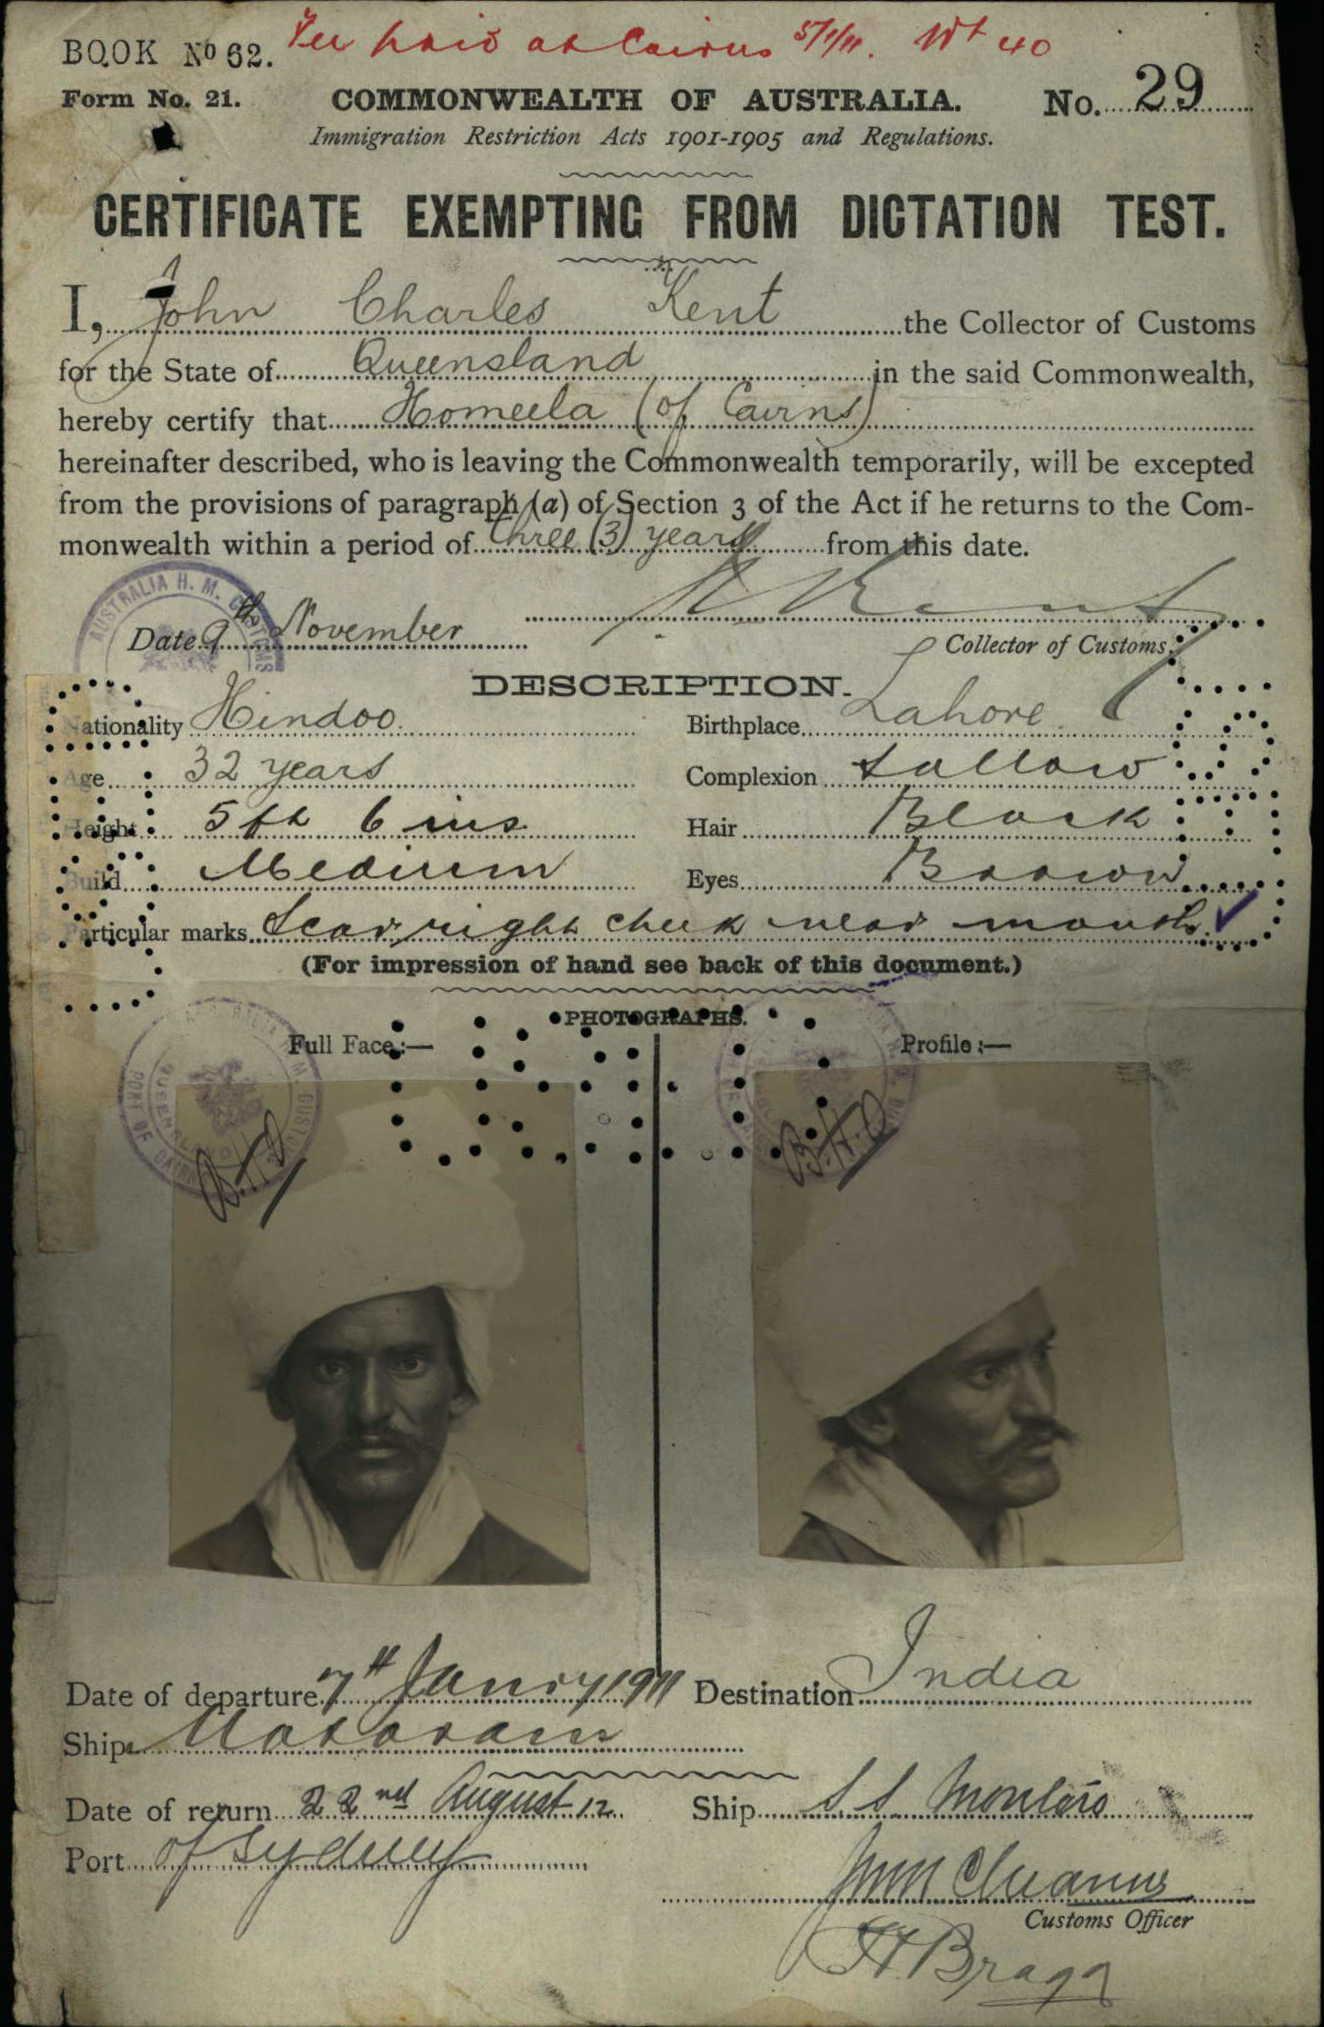 Fee paid at Cairns 5/1/11. Wt 40
BOOK No 62.
Form No. 21.
COMMONWEALTH OF AUSTRALIA.
No. 29
Immigration Restriction Acts 1901-1905 and Regulations.
CERTIFICATE EXEMPTING FROM DICTATION TEST.
I, John Charles Kent the Collector of Customs
for the State of Queensland in the said Commonwealth,
hereby certify that Homeela (of Cairns)
hereinafter described, who is leaving the Commonwealth temporarily, will be excepted
from the provisions of paragraph (a) of Section 3 of the Act if he returns to the Com-
monwealth within a period of three (3) years from this date.
AUSTRALIA H. M. CUSTOMS
Date 9th November
Kent
Collector of Customs.
DESCRIPTION.
Nationality Hindoo. Birthplace Lahore.
Age 32 years Complexion Sallow
Height 5ft 6 ins Hair Black
Build Medium Eyes Brown
Particular marks Scar right cheek near mouth.
(For impression of hand see back of this document.)
PHOTOGRAPHS.
Full Face:— Profile:—
CUSTOMS PORT OF CAIRNS
B.H.O
B.H.O
Date of departure 7th Janry 1911 Destination India
Ship Mataram
Date of return 22nd August 12 Ship S S Montoro
Port of Sydney
Customs Officer
Bragg